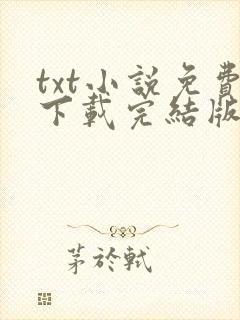 txt小說免費
下載完結版
茅於軾